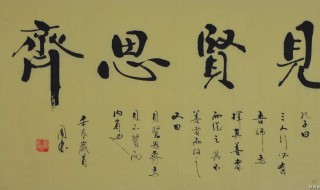 見賢思齊
孔子曰
三人行必有
師焉
擇其善者
而從之其不
善者而改之
又曰
見賢思齊焉
見不賢而
內自省也
壬辰